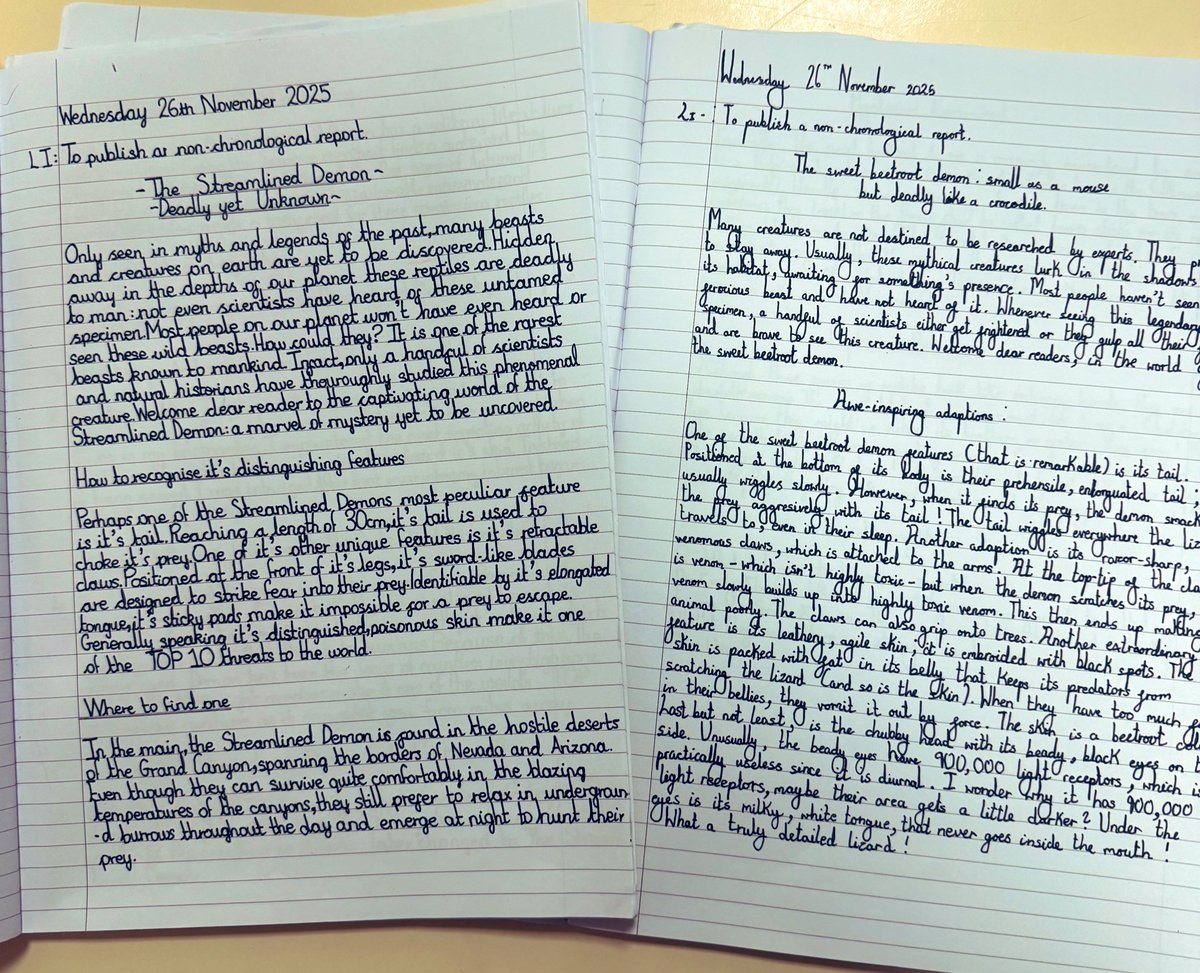 Wednesday 26th November 2025
LI: To publish a non-chronological report.
-The Streamlined Demon~
-Deadly yet Unknown~
Only seen in myths and legends of the past, many beasts
and creatures on earth are yet to be discovered. Hidden
away in the depths of our planet these reptiles are deadly
to man: not even scientists have heard of these untamed
specimen. Most people on our planet won't have even heard or
seen these wild beasts. How could they? It is one of the rarest
beasts known to mankind. Infact, only a handful of scientists
and natural historians have thouroughly studied this phenomenal
creature. Welcome dear reader to the captivating world of the
Streamlined Demon: a marvel of mystery yet to be uncovered.
How to recognise it's distinguishing features
Perhaps one of the Streamlined Demons most peculiar feature
is it's tail. Reaching a length of 30cm, it's tail is used to
choke it's prey. One of it's other unique features is it's retractable
claws. Positioned at the front of it's legs, it's sword-like blades
are designed to strike fear into their prey. Identifiable by it's elongated
tongue, it's sticky pads make it impossible for a prey to escape.
Generally speaking it's distinguished, poisonous skin make it one
of the TOP 10 threats to the world.
Where to find one
In the main, the Streamlined Demon is found in the hostile deserts
of the Grand Canyon, spanning the borders of Nevada and Arizona.
Even though they can survive quite comfortably in the blazing
temperatures of the canyons, they still prefer to relax in undergroun
-d burrows throughout the day and emerge at night to hunt their
prey.
Wednesday 26TH November 2025
LI - To publish a non-chronological report.
The sweet beetroot demon: small as a mouse
but deadly like a crocodile.
Many creatures are not destined to be researched by experts. They
to stay away. Usually, these mythical creatures lurk in the shadows
its habitat, awaiting for something's presence. Most people haven't seen
ferocious beast and have not heard of it. Whenever seeing this legendary
specimen, a handful of scientists either get frightened or they gulp all their
and are brave to see this creature. Welcome dear readers, in the world
the sweet beetroot demon.
Awe-inspiring adaptions:
One of the sweet beetroot demon features (that is remarkable) is its tail.
Positioned at the bottom of its body is their prehensile, enlonguated tail;
usually wiggles slowly. However, when it finds its prey, the demon smack
the prey aggresively with its tail! The tail wiggles everywhere the liz
travels to, even in their sleep. Another adaption is its razor-sharp,
venomous claws, which is attached to the arms. At the top-tip of the cla
is venom - which isn't highly toxic - but when the demon scratches its prey,
venom slowly builds up into highly toxic venom. This then ends up making
animal poorly. The claws can also grip onto trees. Another extraordinary
feature is its leathery, agile skin, it is embroided with black spots. The
skin is packed with fat in its belly that keeps its predators from
scratching the lizard (and so is the skin). When they have too much
in their bellies, they vomit it out by force. The skin is a beetroot col
Last but not least, is the chubby head with its beady, black eyes on
side. Unusually, the beady eyes have 900,000 light receptors, which is
practically useless since it is diurnal. I wonder why it has 900,000
light receptors, maybe their area gets a little darker? Under the
eyes is its milky, white tongue, that never goes inside the mouth!
What a truly detailed lizard!